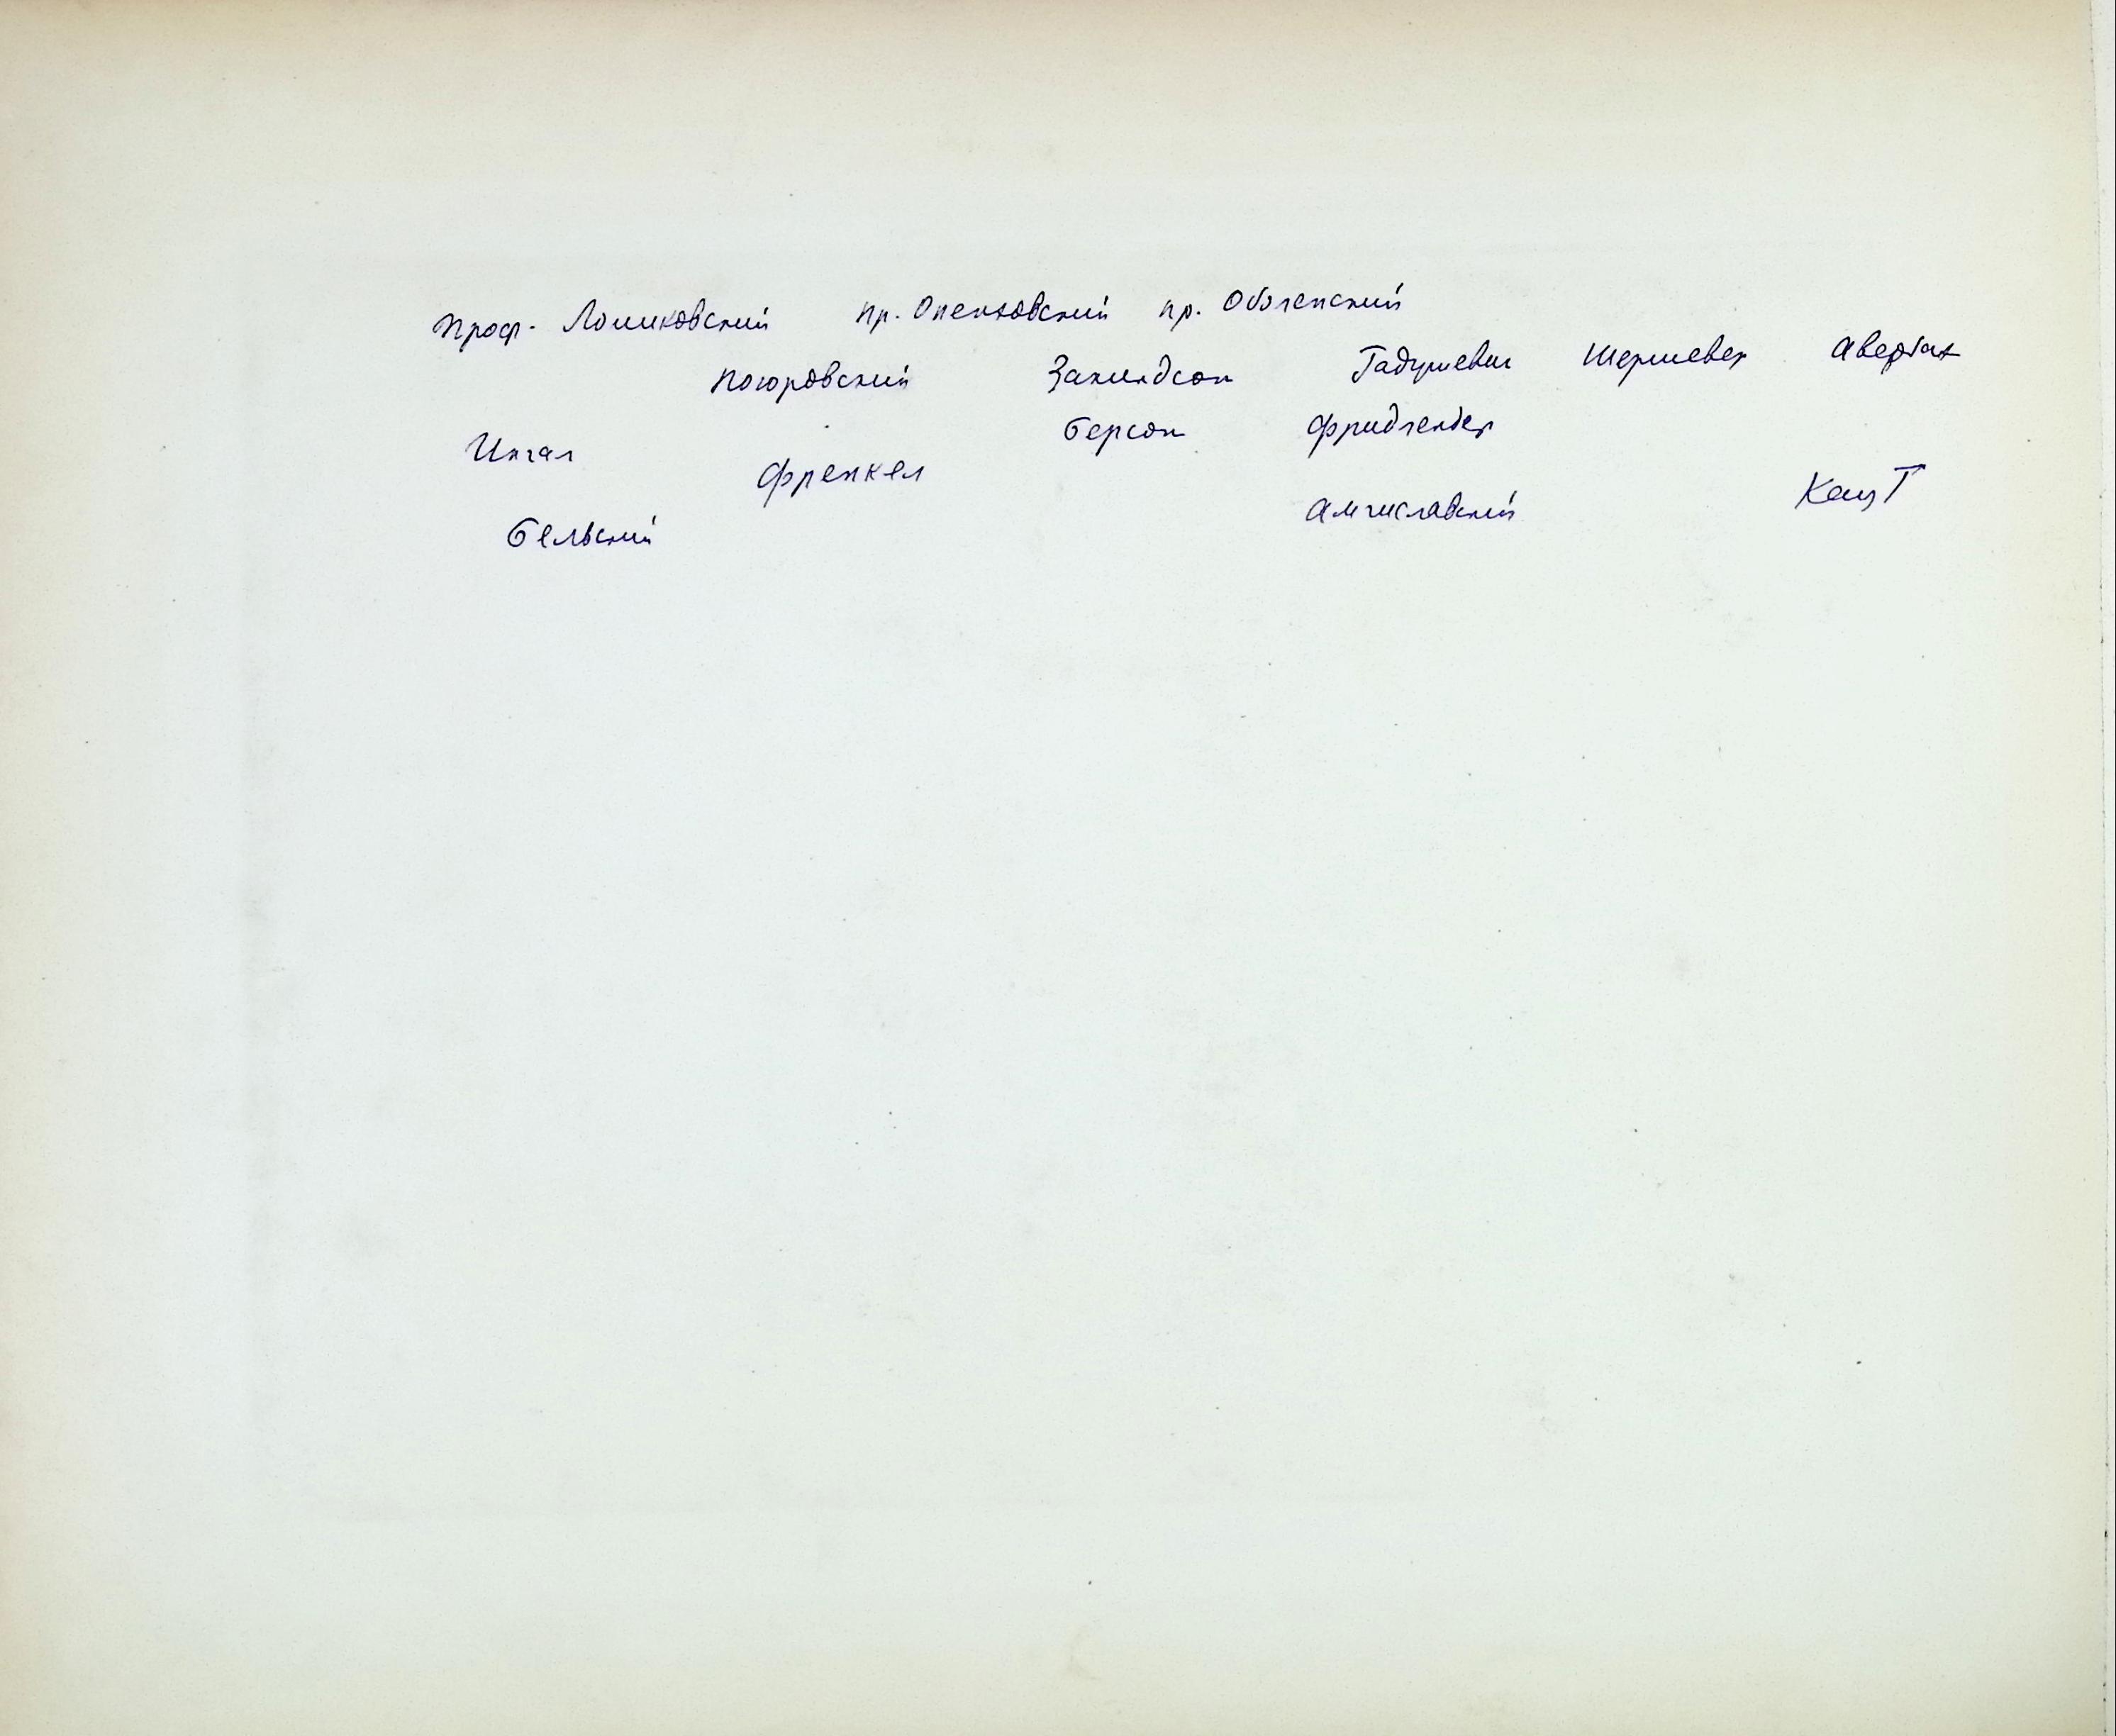 Проф. Ломиковский пр. Опенховский пр. Оболенский
Поюровский Закиндсон Гадушевич Шершевер Авербах
Ингал Берсон Фридлендер
Френкел
Бельский Амчиславский Кац Т